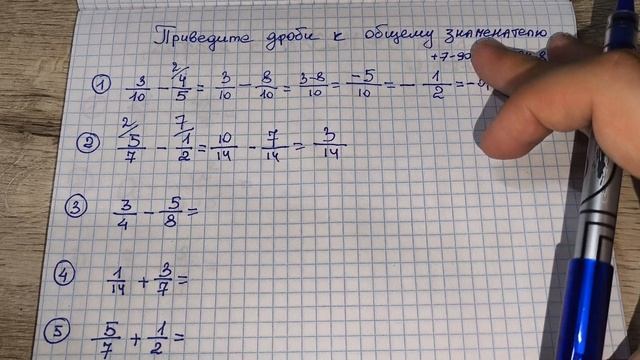 Приведите дроби к общему знаменателю
+7-90
① 3/10 - 4/5 = 3/10 - 8/10 = 3-8/10 = -5/10 = - 1/2 =
② 5/7 - 1/2 = 10/14 - 7/14 = 3/14
③ 3/4 - 5/8 =
④ 1/14 + 3/7 =
⑤ 5/7 + 1/2 =